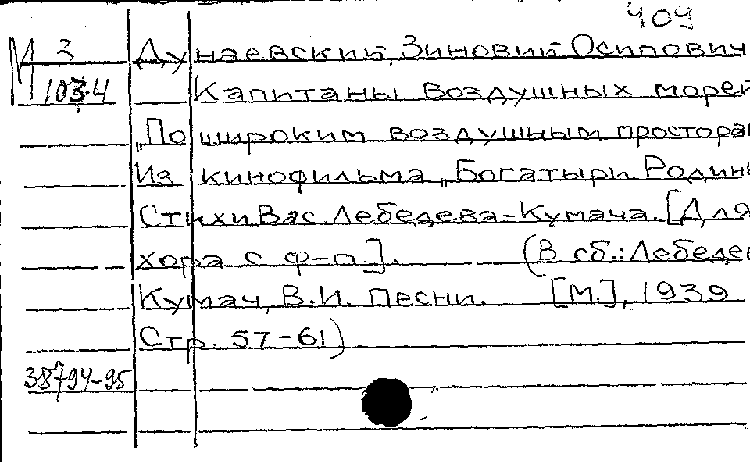 404
М 2 Дунаевский, Зиновий Осипович
103.4 Капитаны воздушных морей
"По широким воздушным простора
Из кинофильма "Богатыри Родины
Стихи Вас. Лебедева-Кумача. [Для
хора с ф-п]. (В сб.: Лебедев
Кумач, В.И. Песни. [М.], 1939
Стр. 57-61)
38794-95